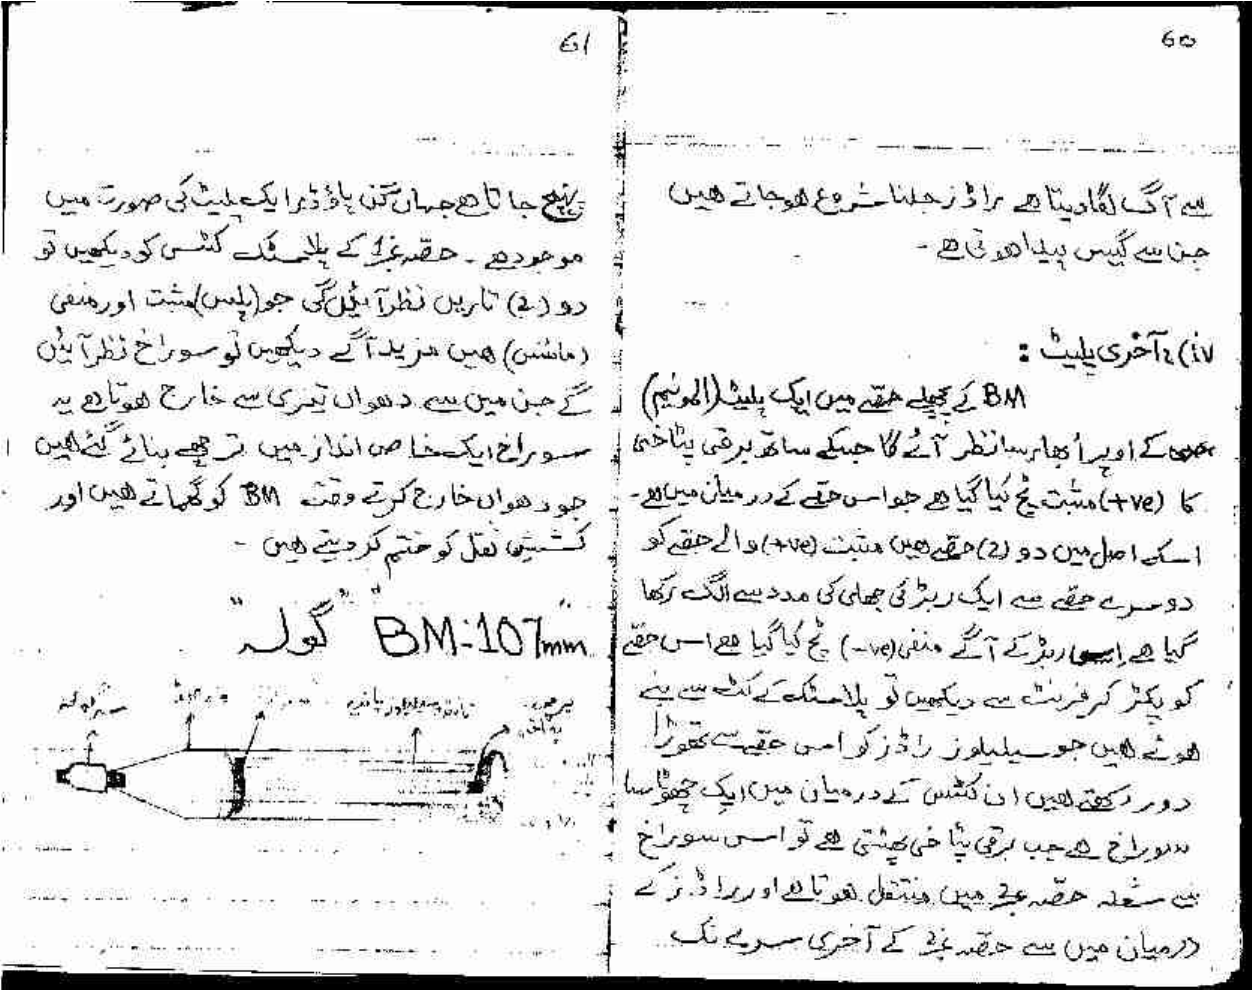 60
سے آگ لگا دیتا ہے راڈز جلنا شروع ہو جاتے ہیں
جن سے گیس پیدا ہوتی ہے ۔
iv) آخری پلیٹ :
BM کے پچھلے حصّے میں ایک پلیٹ (المونیم)
کے اوپر اُبھار سا نظر آئے گا جسکے ساتھ برقی پٹاخی
کا (+ve) مثبت ٹچ کیا گیا ہے جو اس حصّے کے درمیان میں ہے۔
اسکے اصل میں دو (2) حصّے ہیں مثبت (+ve) والے حصّے کو
دوسرے حصّے سے ایک ربڑ کی جھلی کی مدد سے الگ رکھا
گیا ہے اسی ربڑ کے آگے منفی (-ve) ٹچ کیا گیا ہے اس حصّے
کو پکڑ کر فرنٹ سے دیکھیں تو پلاسٹک کے کٹ سے بنے
ہوئے ہیں جو سیلیلوز راڈز کو اس حصّے سے تھوڑا
دور رکھتے ہیں ان کٹس کے درمیان میں ایک چھوٹا سا
سوراخ ہے جب برقی پٹاخی پھٹتی ہے تو اس سوراخ
سے شعلہ حصّہ میں منتقل ہوتا ہے اور راڈز کے
درمیان میں سے حصّہ کے آخری سرے تک
61
پہنچ جاتا ہے جہاں گن پاؤڈر ایک پلیٹ کی صورت میں
موجود ہے ۔ حصّہ کے پلاسٹک کٹس کو دیکھیں تو
دو (2) تاریں نظر آئیں گی جو (پلس) مثبت اور منفی
(مائنس) ہیں مزید آگے دیکھیں تو سوراخ نظر آئیں
گے جن میں سے دھواں تیزی سے خارج ہوتا ہے یہ
سوراخ ایک خاص انداز میں ترچھے بنائے گئے ہیں
جو دھواں خارج کرتے وقت BM کو گھماتے ہیں اور
کشش ثقل کو ختم کر دیتے ہیں ۔
"BM-107mm" "گولہ"